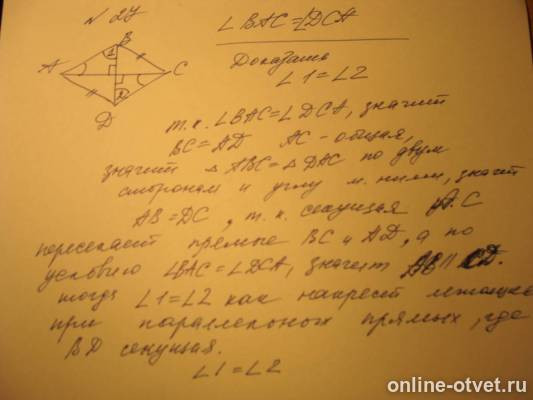 N 27
∠BAC=∠DCA
Доказать
∠1=∠2
A B C D 1 2
т.к. ∠BAC=∠DCA, значит
BC=AD AC - общая,
значит △ABC=△DAC по двум
сторонам и углу м. ними, значит
AB=DC, т.к. секущая AC
пересекает прямые BC и AD, а по
условию ∠BAC=∠DCA, значит AB || CD.
тогда ∠1=∠2 как накрест лежащие
при параллельных прямых, где
BD секущая.
∠1=∠2
online-otvet.ru